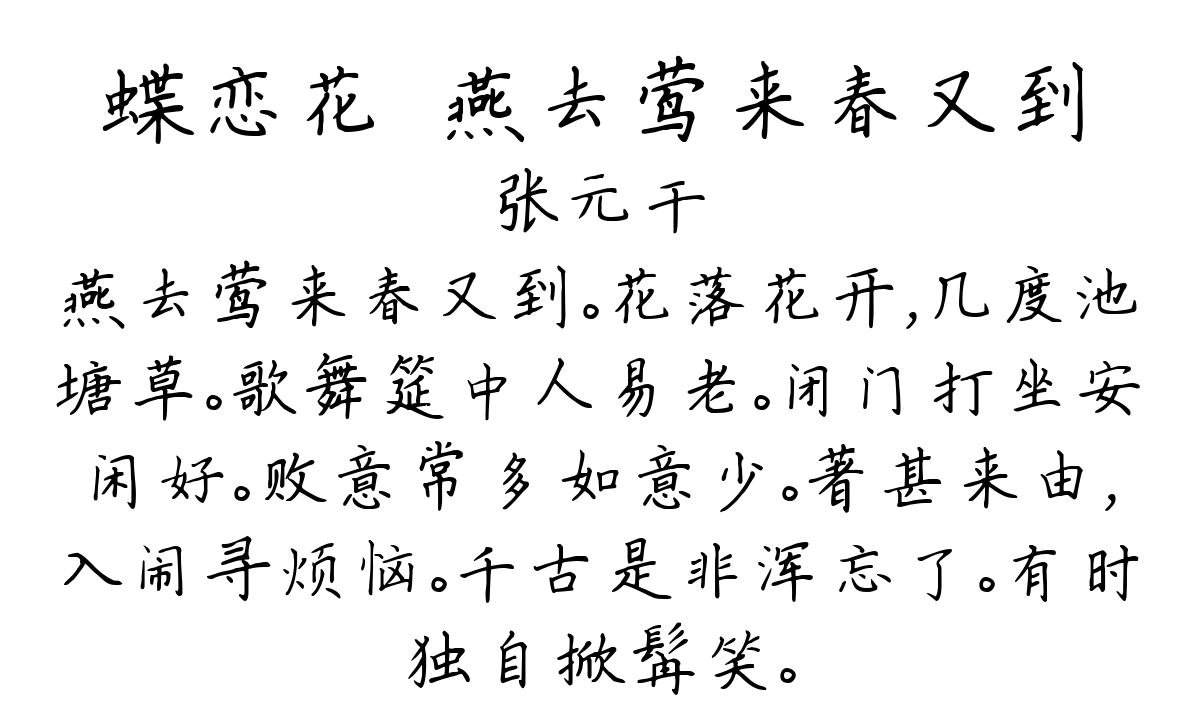 蝶恋花 燕去莺来春又到
张元干
燕去莺来春又到。花落花开,几度池
塘草。歌舞筵中人易老。闭门打坐安
闲好。败意常多如意少。著甚来由,
入闹寻烦恼。千古是非浑忘了。有时
独自掀髯笑。